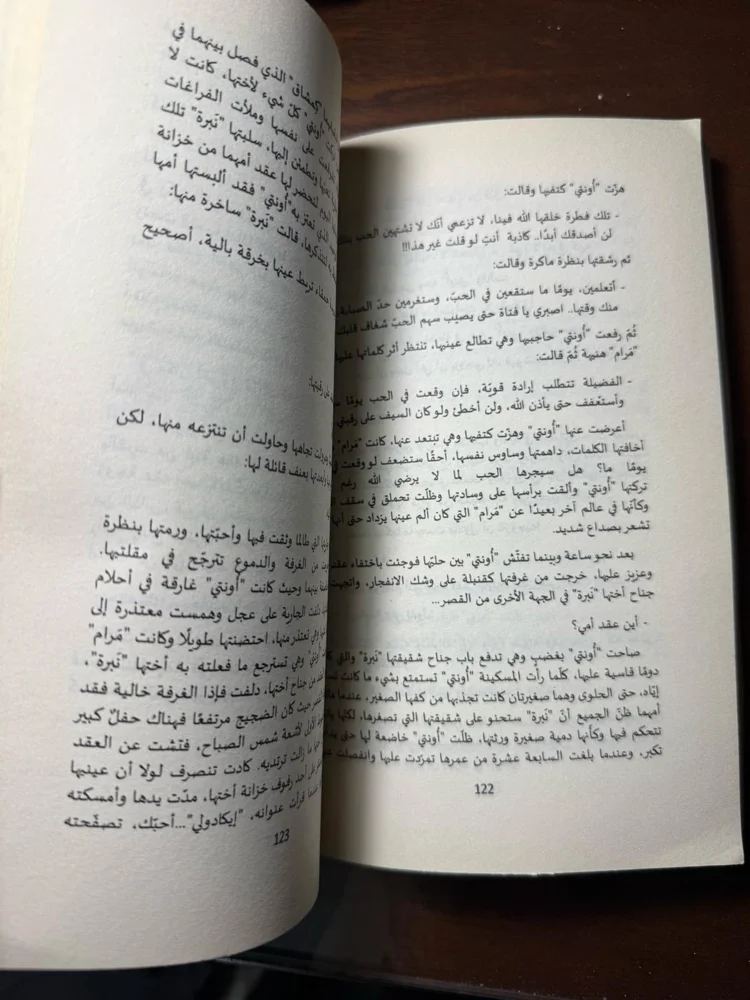 هزّت "أونتي" كتفيها وقالت:
- تلك فطرة خلقها الله فينا، لا تزعمي أنّك لا تشتهين الحب
لن أصدقك أبدًا.. كاذبة أنتِ لو قلت غير هذا!!!
ثم رشقتها بنظرة ماكرة وقالت:
- أتعلمين، يومًا ما ستقعين في الحبّ، وستغرمين حدّ الصبابة
منك وقتها.. اصبري يا فتاة حتى يصيب سهم الحبّ شغاف قلبك
ثُمّ رفعت "أونتي" حاجبيها وهي تطالع عينيها، تنتظر أثر كلماتها عليها
"مَرام" هنيهة ثُمّ قالت:
- الفضيلة تتطلب إرادة قويّة، فإن وقعت في الحب يومًا
وأستعّفف حتى يأذن الله، ولن أخطئ ولو كان السيف على رقبتي
أعرضت عنها "أونتي" وهزّت كتفيها وهي تبتعد عنها، كانت "مَرام"
أخافتها الكلمات، داهمتها وساوس نفسها، أحقًا ستضعف لو وقعت في
يومًا ما؟ هل سيجرها الحب لما لا يرضي الله رغم
تركتها "أونتي" وألقت برأسها على وسادتها وظلّت تحملق في سقف
وكأنّها في عالم آخر بعيدًا عن "مَرام" التي كان ألم عينها يزداد حتى أنها
تشعر بصداع شديد.
بعد نحو ساعة وبينما تفتّش "أونتي" بين حليّها فوجئت باختفاء عقد
وعزيز عليها، خرجت من غرفتها كقنبلة على وشك الانفجار، واتجهت
جناح أختها "نَبرة" في الجهة الأخرى من القصر...
- أين عقد أمي؟
صاحت "أونتي" بغضب وهي تدفع باب جناح شقيقتها "نَبرة" والتي
دومًا قاسية عليها، كلّما رأت المسكينة "أونتي" تستمتع بشيء ما كانت
إيّاه، حتى الحلوى وهما صغيرتان كانت تجذبها من كفها الصغير، عندما
أمهما ظنّ الجميع أنّ "نَبرة" ستحنو على شقيقتها التي تصغرها، لكنّها
تتحكم فيها وكأنّها دمية صغيرة ورثتها، ظلّت "أونتي" خاضعة لها حتى
تكبر، وعندما بلغت السابعة عشرة من عمرها تمرّدت عليها وانفصلت
122
"كمشاق" الذي فصل بينهما في
"أونتي" كلّ شيء لأختها، كانت لا
على نفسها وملأت الفراغات
وتطمئن إليها، سلبتها "نَبرة" تلك
لتحضر لها عقد أمهما من خزانة
تعتز به "أونتي" فقد ألبستها أمها
قالت "نَبرة" ساخرة منها:
تربط عينها بخرقة بالية، أصحيح
تجاهها وحاولت أن تنتزعه منها، لكن
بعنف قائلة لها:
التي طالما وثقت فيها وأحبّتها، ورمتها بنظرة
من الغرفة والدموع تترجّح في مقلتيها.
بينهما وحيث كانت "أونتي" غارقة في أحلام
دلفت الجارية على عجل وهمست معتذرة إلى
وهي تعتذر منها، احتضنتها طويلًا وكانت "مَرام"
"أونتي" وهي تسترجع ما فعلته به أختها "نَبرة"،
من جناح أختها، دلفت فإذا الغرفة خالية فقد
حيث كان الضجيج مرتفعًا فهناك حفلٌ كبير
الأول لأشعة شمس الصباح، فتشت عن العقد
ما زالت ترتديه. كادت تنصرف لولا أن عينيها
على أحد رفوف خزانة أختها، مدّت يدها وأمسكته
عندما قرأت عنوانه، "إيكادولي"...أحبّك، تصفّحته
123